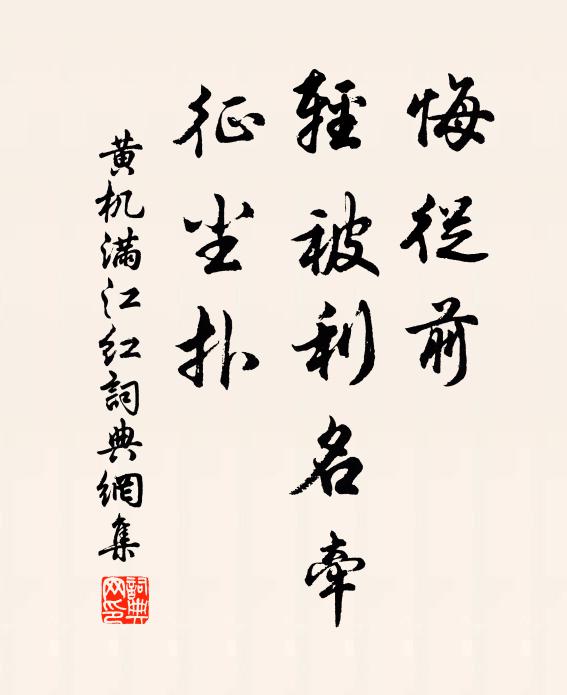 悔從前
輕被利名牽
征尘扑
黄机满江红詞典網集
詞典網印